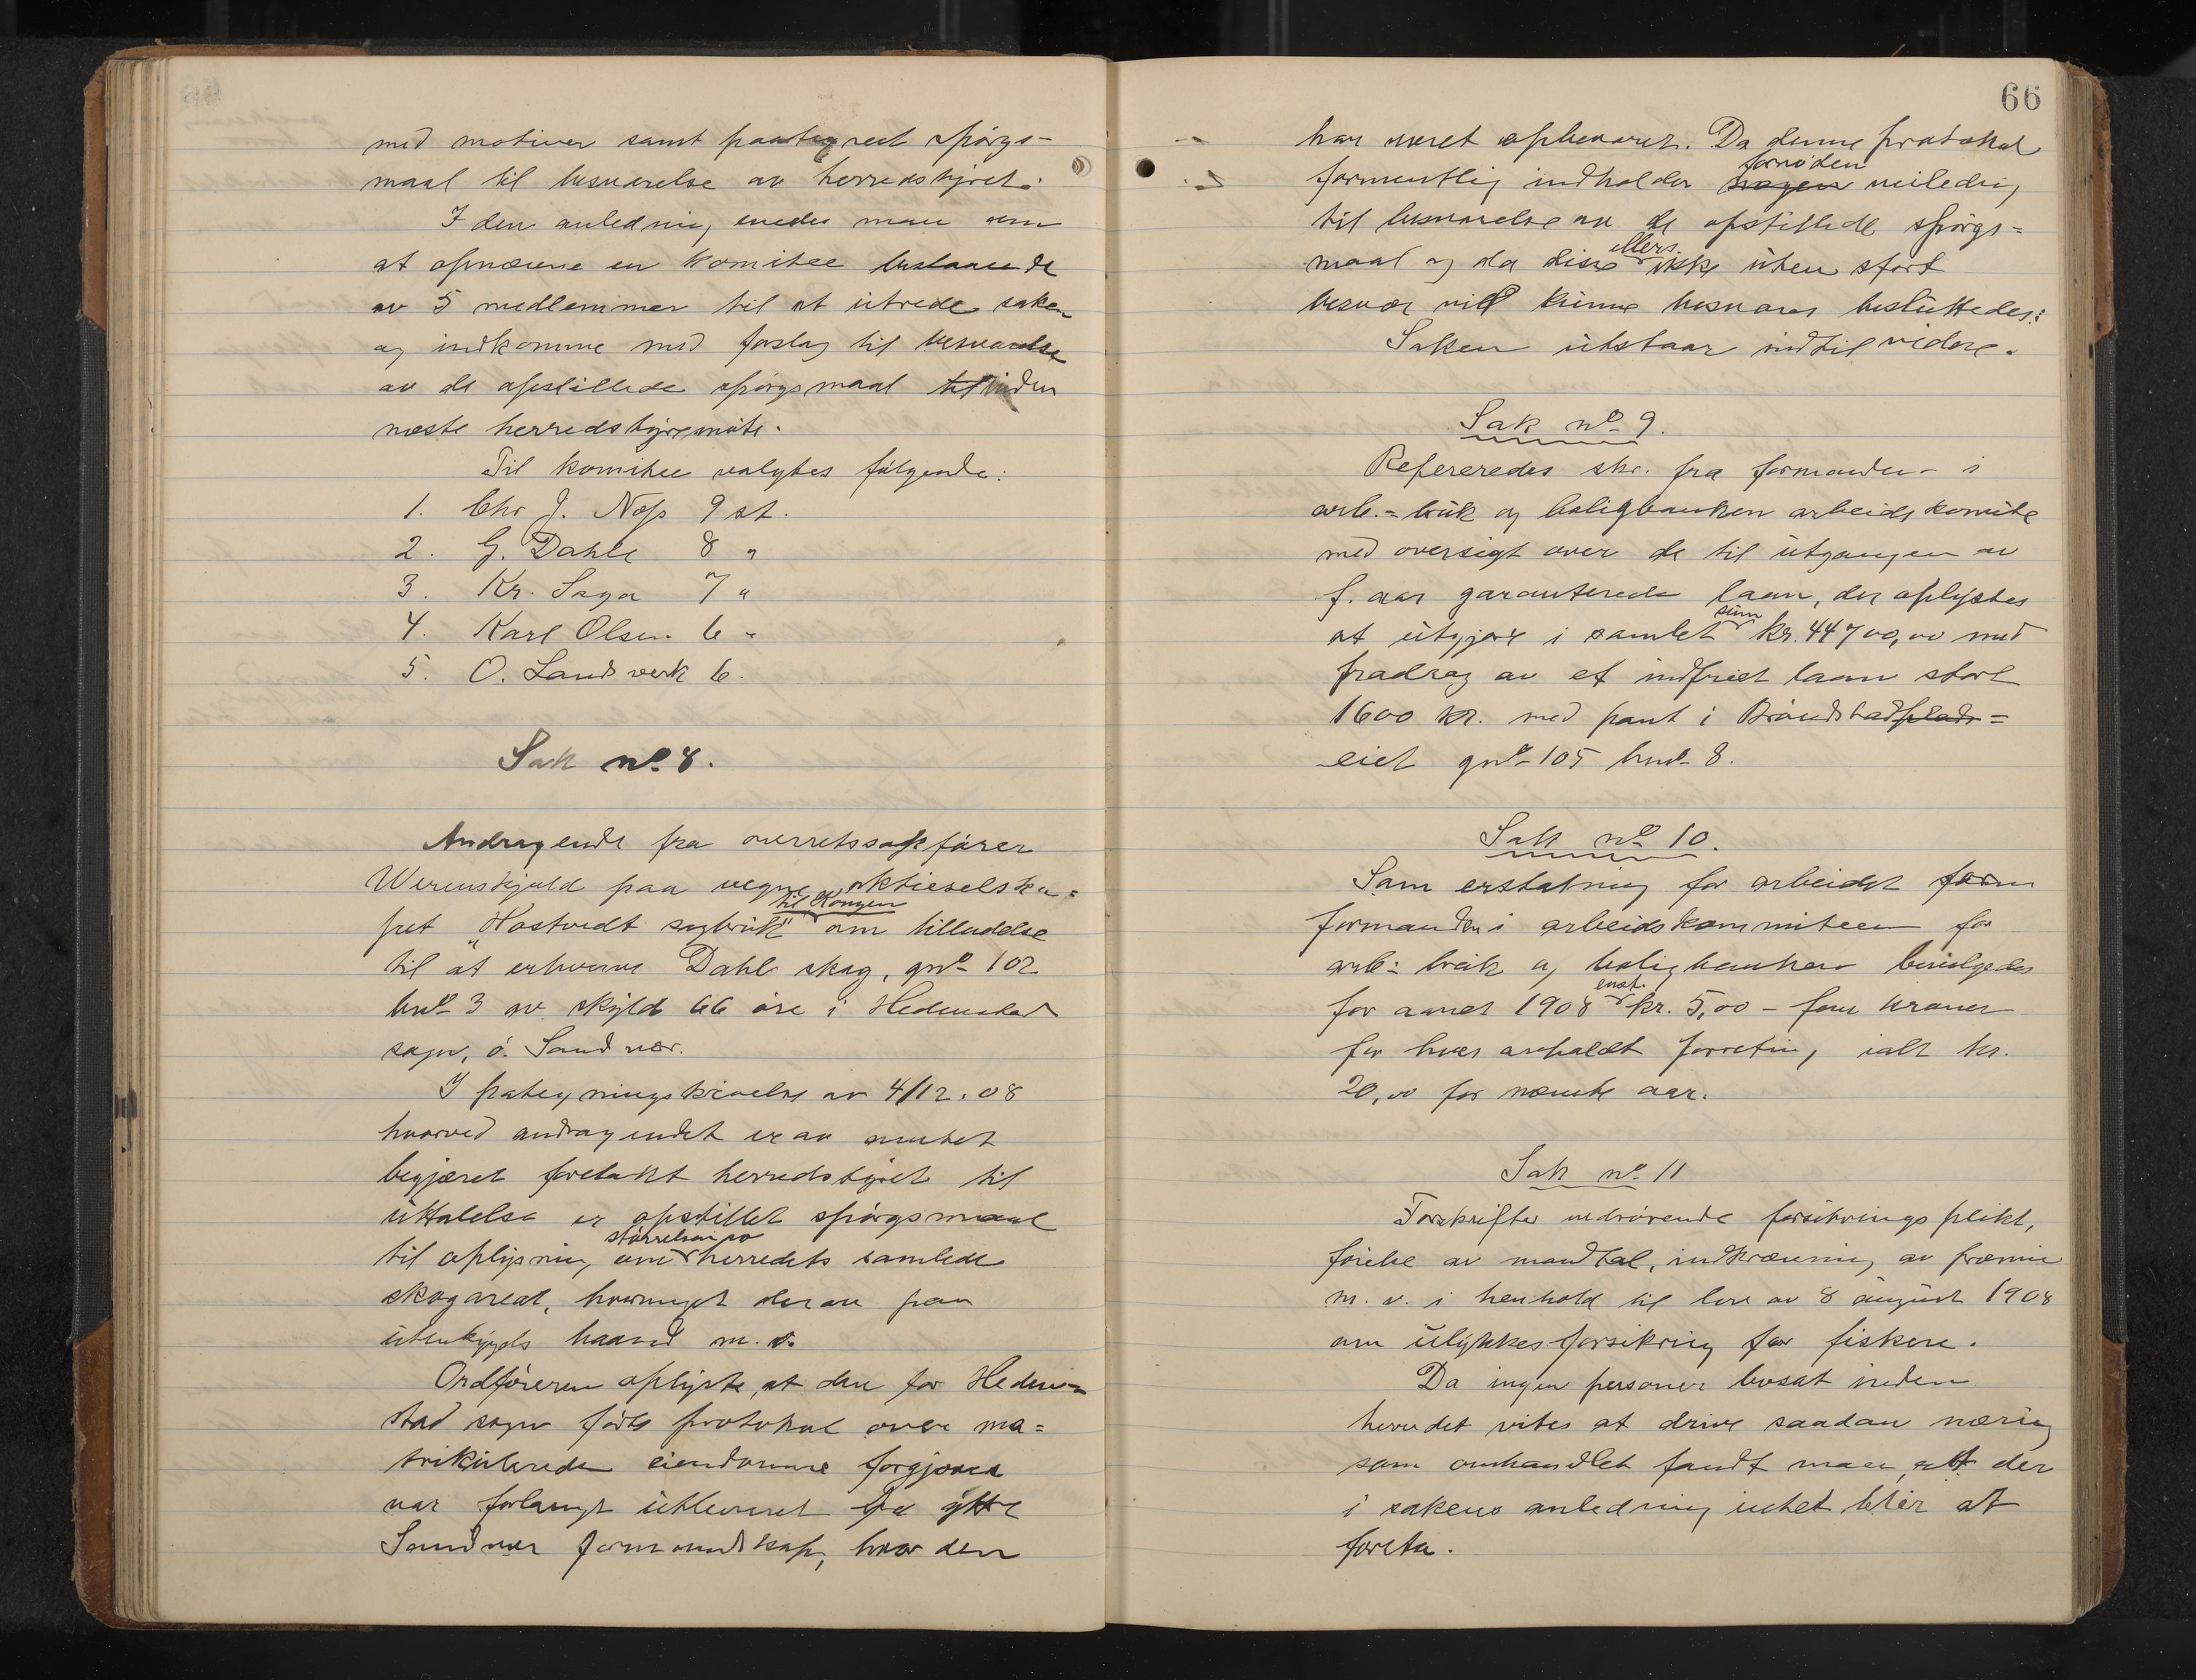 med motiver samt paategnet spörgs-
maal til besvarelse av herredstyret.
I den anledning enedes man om
at opnævne en komitee bestaaende
av 5 medlemmer til at utrede saken
og indkomme med forslag til besvarelse
av de opstillede spörgsmaal til inden
næste herredstyremöte.
Til komitee valgtes fölgende:
1. Chr J. Næss 9 st.
2. G. Dahle 8 "
3. Kr. Saga 7 "
4. Karl Olsen 6 "
5. O. Landsverk 6.
Sak no. 8.
Andragende fra overretssakförer
Werenskjold paa vegne aktieselska=
til Kongen
pet "Hostvedt sagbruk" om tilladelse
til at erhverve Dahle skog, gno 102
bno 3 av skyld 66 öre i Hedenstad
sogn, ö. Sandsvær.
I pategningskrivelse av 4/12. 08
hvorved andragendet er av amtet
begjæret forelakt herredstyret til
uttalelse er opstillet spörgsmaal
störrelsen av
til oplysning om herredets samlede
skogareal, hvormeget derav paa
utenbygds haand m. v.
Ordföreren oplyste, at den for Heden=
stad sogn förte protokol over ma=
trikulerede eiendomme forgjæves
var forlangt utleveret fra ytre
Sandsvær formandskap, hvor den
66
har været opbevaret. Da denne protokol
fornöden
formentlig indholder nogen veiledning
til besvarelse av de opstillede spörgs=
ellers
maal og da disse ikke uten stort
besvær vil kunne besvares besluttedes:
Saken utstaar indtil videre.
Sak no 9.
Refereredes skr. fra formanden i
arb.=bruk og boligbanken arbeidskomite
med oversigt over de til utgangen av
f. aar garanterede laan, der oplystes
sum
at utgjöre i samlet kr. 44700,00 med
fradrag av et indfriet laan stort
1600 kr. med pant i Brandstadplads=
eiet gno 105 bno 8.
Sak no 10.
Som erstatning for arbeidet som
formanden i arbeidskommiteen for
arb: bruk og boligbanken bevilgedes
enst.
for aaret 1908 kr. 5,00 - fem kroner
for hver avholdt forretning, ialt kr.
20,00 for nævnte aar.
Sak no 11
Forskrifter vedrörende forsikringsplikt,
förelse av mandtal, indkrævning av præmie
m. v. i henhold til lov av 8 august 1908
om ulykkesforsikring for fiskere.
Da ingen personer bosat inden
herredet vites at drive saadan næring
som omhandlet fandt man, at der
i sakens anledning intet blir at
foreta.